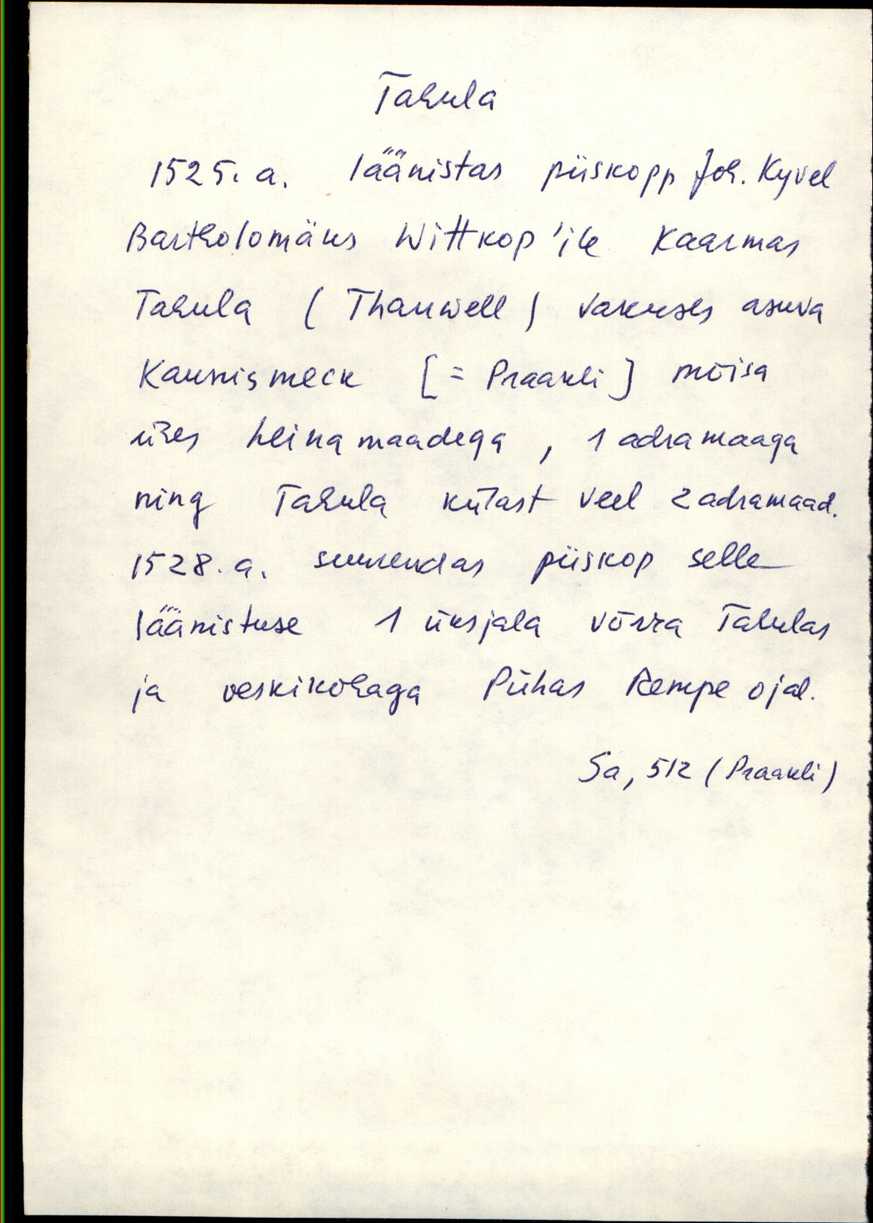 Tahula
1525. a. läänistas piiskopp Joh. Kyvel
Bartholomäus Wittkop'ile Kaarmas
Tahula (Thauwell) vakuses asuva
Kaunismeck [= Praakli] mõisa
ühes heinamaadega, 1 adramaaga
ning Tahula külast veel 2 adramaad.
1528. a. suurendas piiskop selle
läänistuse 1 üksjala võrra Tahulas
ja veskikohaga Pühas Rempe ojal.
Sa, 512 (Praakli)